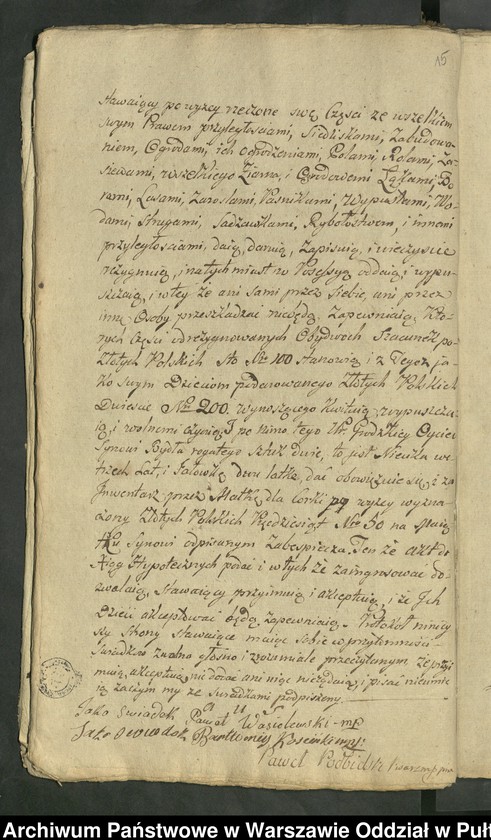 15
stawaiący po wyżey rzeczone swę Części ze wszelkiem
swym Prawem przyległościami, Siedliskami, Zabudowa-
niem, Ogrodami, ich ogrodzeniami, Polami, Rolami, Za-
siewami, wszelkiego Ziarna, i Ogrodowemi Łąkami, Bo-
rami, Lasami, Zaroslami, Pasnikami, Wypustkami, Wo-
dami, Strugami, Sadzawkami, Rybołostwem, i innemi
przyległościami, daią, daruią, Zapisuią, i wieczyście
rezygnuią, i natychmiast w Possessyą oddaią, i wypu-
szczaią, i w tey że ani sami przez siebie, ani przez
inne Osoby przeszkadzać niebędą, Zapewniaią. Któ-
rych Części odrezygnowanych Obydwoch Szacunek po
Złotych Polskich Sto Nro 100 stanowią i z Tegoż ja-
ko swym Dzieciom podarowanego Złotych Polskich
Dwiescie Nro 200. wynoszącego kwituią, wypuszcza-
ią, i wolnemi czynią. I pomimo tego Ur. Grodzkiey Oyciec
Synowi Bydła rogatego Sztuk dwie, to jest Nieuka we
trzech lat, i Jałowkę dwu latkę, dać obowiązuie się, i za
Inwentarz przez Matkę dla corki wyżey wyzna-
czony Złotych Polskich Pięćdziesiąt Nro 50 na
Synowi odpisanym Zabespiecza. Ten że Akt do
Xiąg Hypotecznych podać i w tych że zaingrosować do-
zwalaią, Stawaiący przyimuią i akceptuią, i że Jch
Dzieci akceptować będą zapewniaią. Protokół niniey-
szy Strony Stawaiące maiąc sobie w przytomności
Swiadków zwolna głośno i zrozumiale przeczytanym że przyi-
muią, akceptuią, nic dodać ani niąc nieżądaią, i pisać nieumie-
ią zaczym my ze Swiadkami podpisujemy.
Jako Swiadek Paweł Wasielewski mp
Jako Swiadek Bartłomiey Kosinski mp.
Paweł
Archiwum Państwowe w Warszawie Oddział w Puł